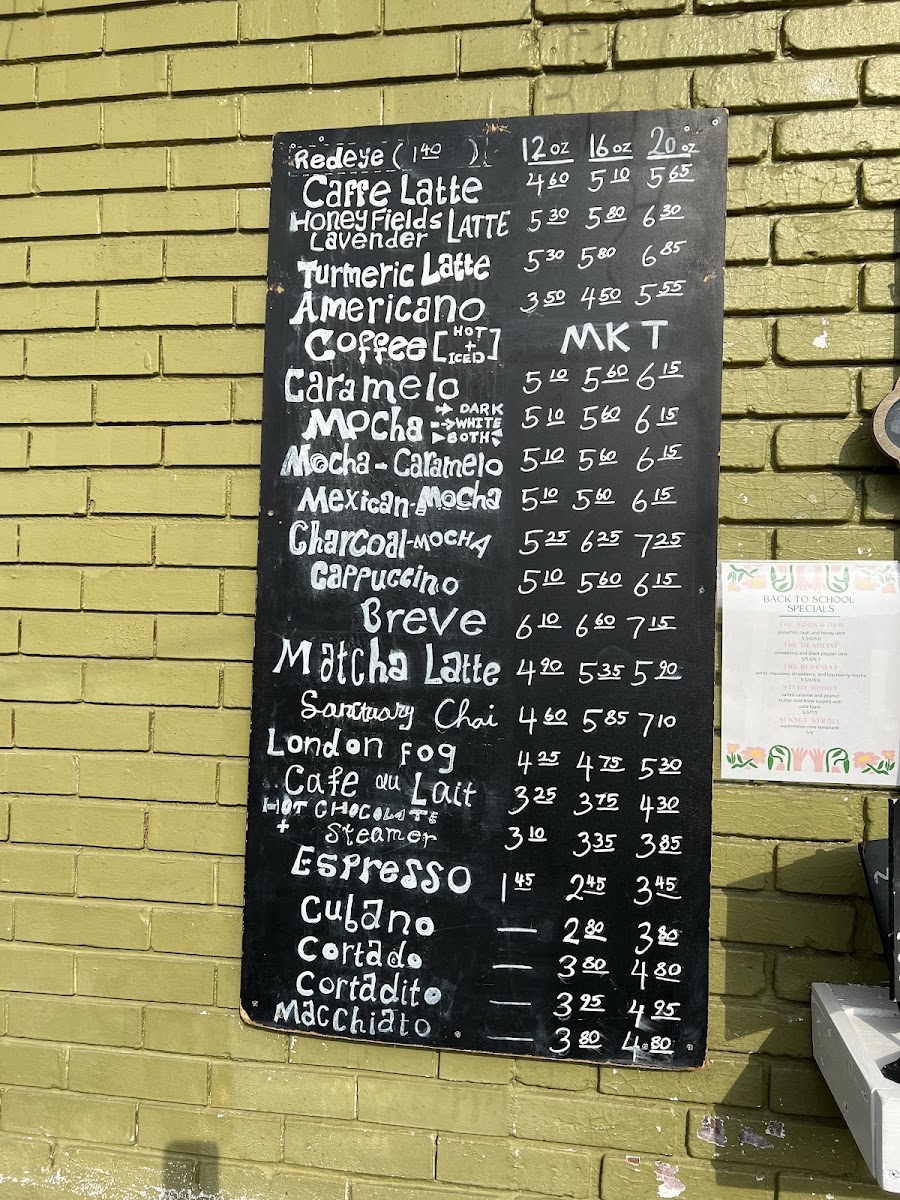 Redeye ( 1 40 ) 12 oz 16 oz 20 oz
Caffe Latte 4 60 5 10 5 65
Honey Fields
Lavender LATTE 5 30 5 80 6 30
Turmeric Latte 5 30 5 80 6 85
Americano 3 50 4 50 5 55
Coffee [HOT + ICED] MKT
Caramelo 5 10 5 60 6 15
Mocha → DARK → WHITE ► BOTH 5 10 5 60 6 15
Mocha - Caramelo 5 10 5 60 6 15
Mexican-Mocha 5 10 5 60 6 15
Charcoal-MOCHA 5 25 6 25 7 25
Cappuccino 5 10 5 60 6 15
Breve 6 10 6 60 7 15
Matcha Latte 4 90 5 35 5 90
Sanctuary Chai 4 60 5 85 7 10
London Fog 4 25 4 75 5 30
Cafe au Lait 3 25 3 75 4 30
HOT CHOCOLATE
+ Steamer 3 10 3 35 3 85
Espresso 1 45 2 45 3 45
Cubano — 2 80 3 80
Cortado — 3 80 4 80
Cortadito — 3 95 4 95
Macchiato — 3 80 4 80
BACK TO SCHOOL
SPECIALS
THE BOOKWORM
pistachio, rose, and honey latte
THE DEADLINE
strawberry and black pepper latte
THE REDCOAT
white chocolate, strawberry, and blackberry mocha
STUDY BUDDY
salted caramel and peanut
butter cold brew topped with
cold foam
SUNSET STROLL
watermelon rose lemonade